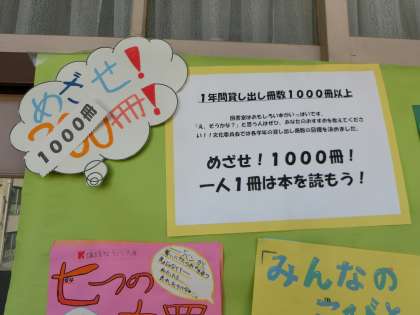 めざせ!
1000冊
00冊!
1年間貸し出し冊数1000冊以上
図書室はおもしろい本がいっぱいです。
「え、そうかな?」と思う人はぜひ、あなたのおすすめを教えてくださ
い!!文化委員会では各学年の貸し出し冊数の目標を決めました。
めざせ!1000冊!
一人1冊は本を読もう!
七つの
みんなの